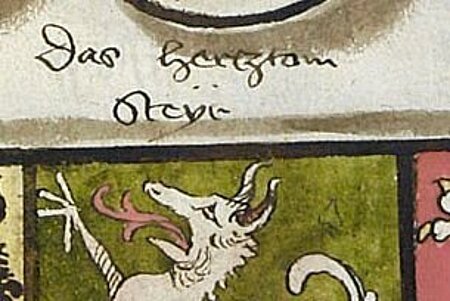 Das hertztom
Steyr